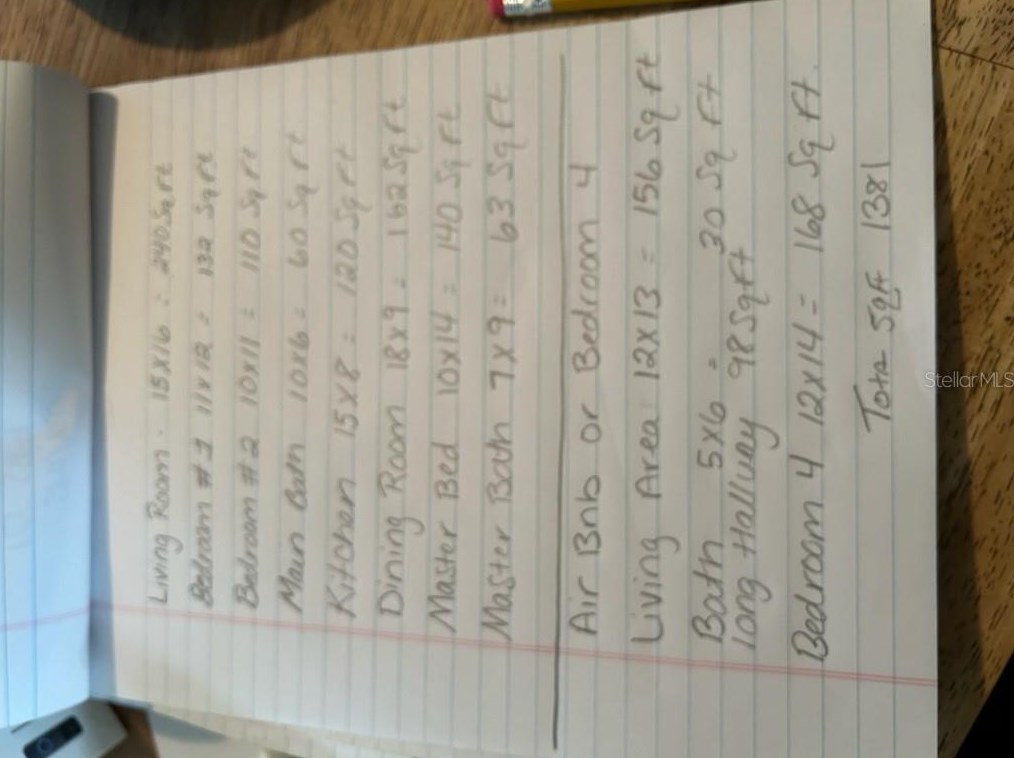 Living Room. 15x16 = 240 Sq Ft
Bedroom #1 11x12 = 132 Sq Ft
Bedroom #2 10x11 = 110 Sq Ft
Main Bath 10x6 = 60 Sq Ft
Kitchen 15x8 = 120 Sq Ft
Dining Room 18x9 = 162 Sq Ft
Master Bed 10x14 = 140 Sq Ft
Master Bath 7x9 = 63 Sq Ft
Air Bnb or Bedroom 4
Living Area 12x13 = 156 Sq Ft
Bath 5x6 = 30 Sq Ft
long Hallway 98 Sq Ft
Bedroom 4 12x14 = 168 Sq Ft.
Total Sq Ft 1381
StellarMLS